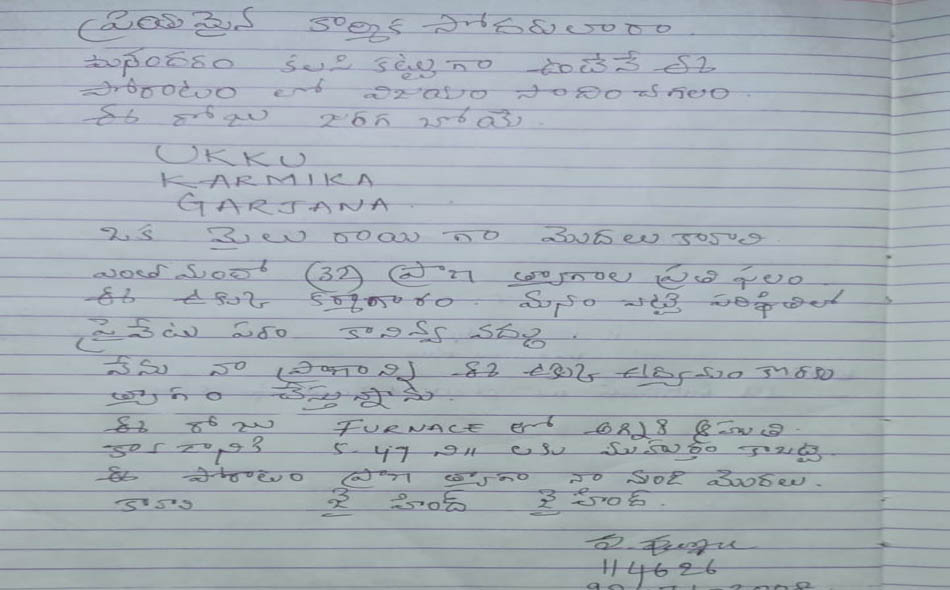 ప్రియమైన కార్మిక సోదరులారా
మనందరం కలసి కట్టుగా ఉంటేనే ఈ
పోరాటం లో విజయం సాదించగలం
ఈ రోజు జరగ బోయే
UKKU
KARMIKA
GARJANA
ఒక మైలు రాయి గా మొదలు కావాలి
ఎంతో మందో (32) ప్రాణ త్యాగాల ప్రతి ఫలం
ఈ ఉక్కు కర్మాగారం. మనం ఎట్టి పరిస్థితిలో
ప్రైవేటు పరం కానివ్వ వద్దు.
నేను నా ప్రాణాన్ని ఈ ఉక్కు ఉద్యమం కొరకు
త్యాగం చేస్తున్నాను.
ఈ రోజు FURNACE లో అగ్నికి ఆహుతి
కావడానికి 5-47 ని|| లకు ముహుర్తం కాబట్టి
ఈ పోరాటం ప్రాణ త్యాగం నా నుండి మొదలు.
కావాలి జై హింద్ జై హింద్.
114626